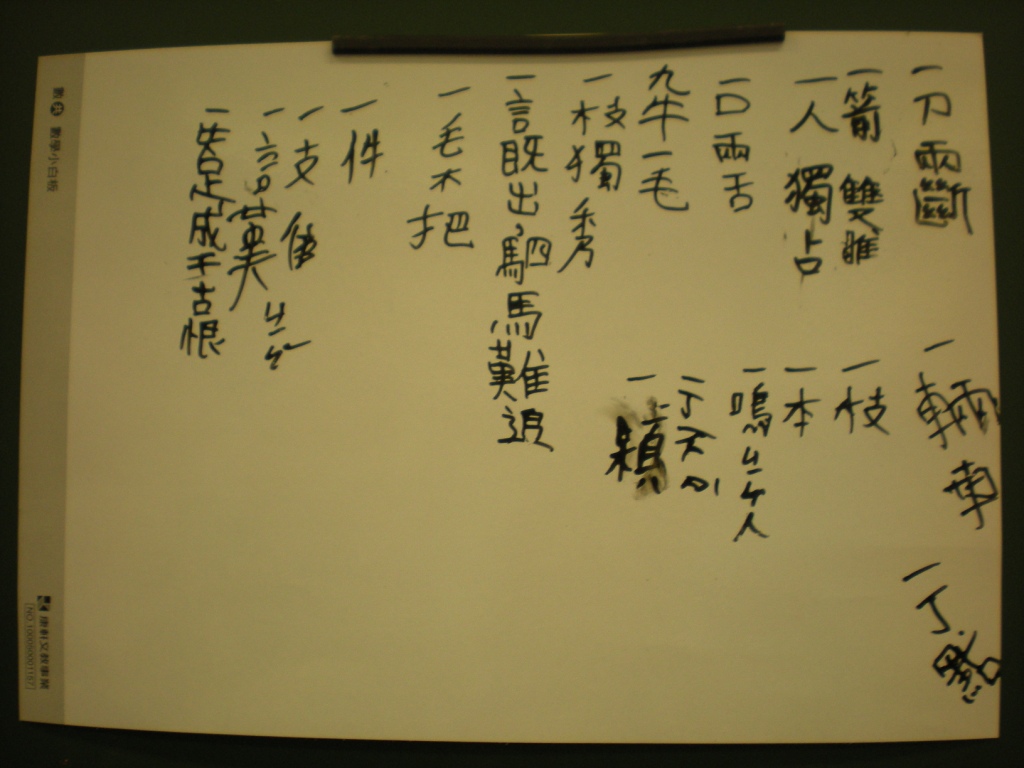 一刀兩斷
一箭雙鵰
一人獨占
一口兩舌
九牛一毛
一枝獨秀
一言既出,駟馬難追
一毛不拔
一件
一支
一失足成千古恨
一輛車
一枝
一本
一鳴ㄐㄧㄥ人
一丁不
一顆
一丁點
數學小白板
康軒文教事業